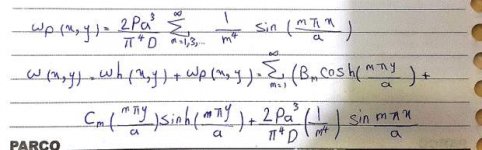 wp(x,y) = 2Pa³/π⁴D ∑_{m=1,3,...}^{∞} 1/m⁴ sin (mπx/a)
w(x,y) = wh(x,y) + wp(x,y) = ∑_{m=1}^{∞} (Bₘ cosh(mπy/a) +
Cₘ(mπy/a) sinh(mπy/a) + 2Pa³/π⁴D (1/m⁴) sin mπx/a
PARCO